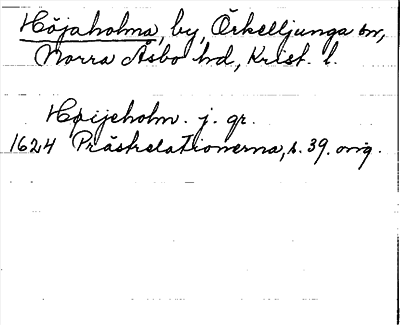 Höjaholma, by, Örkelljunga sn,
Norra Åsbo hd, Krist. l.
Høijeholm. j. gr.
1624 Prästrelationerna, s. 39. orig.